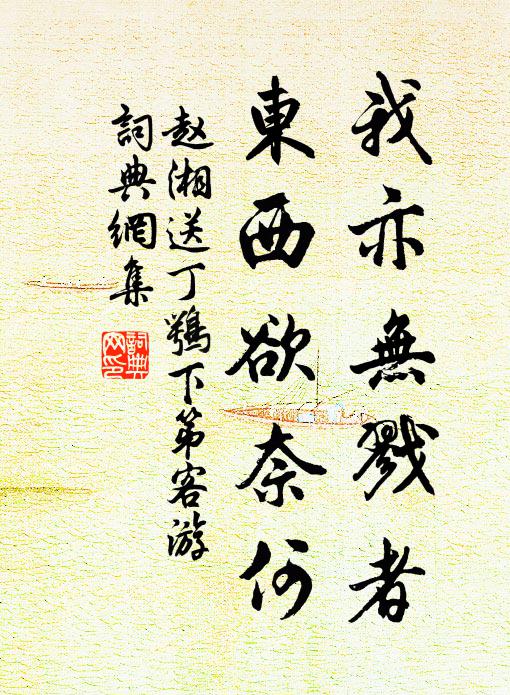 我亦無戮者
東西欲奈何
赵湘送丁鶚下第客游
詞典網集
詞典
网印